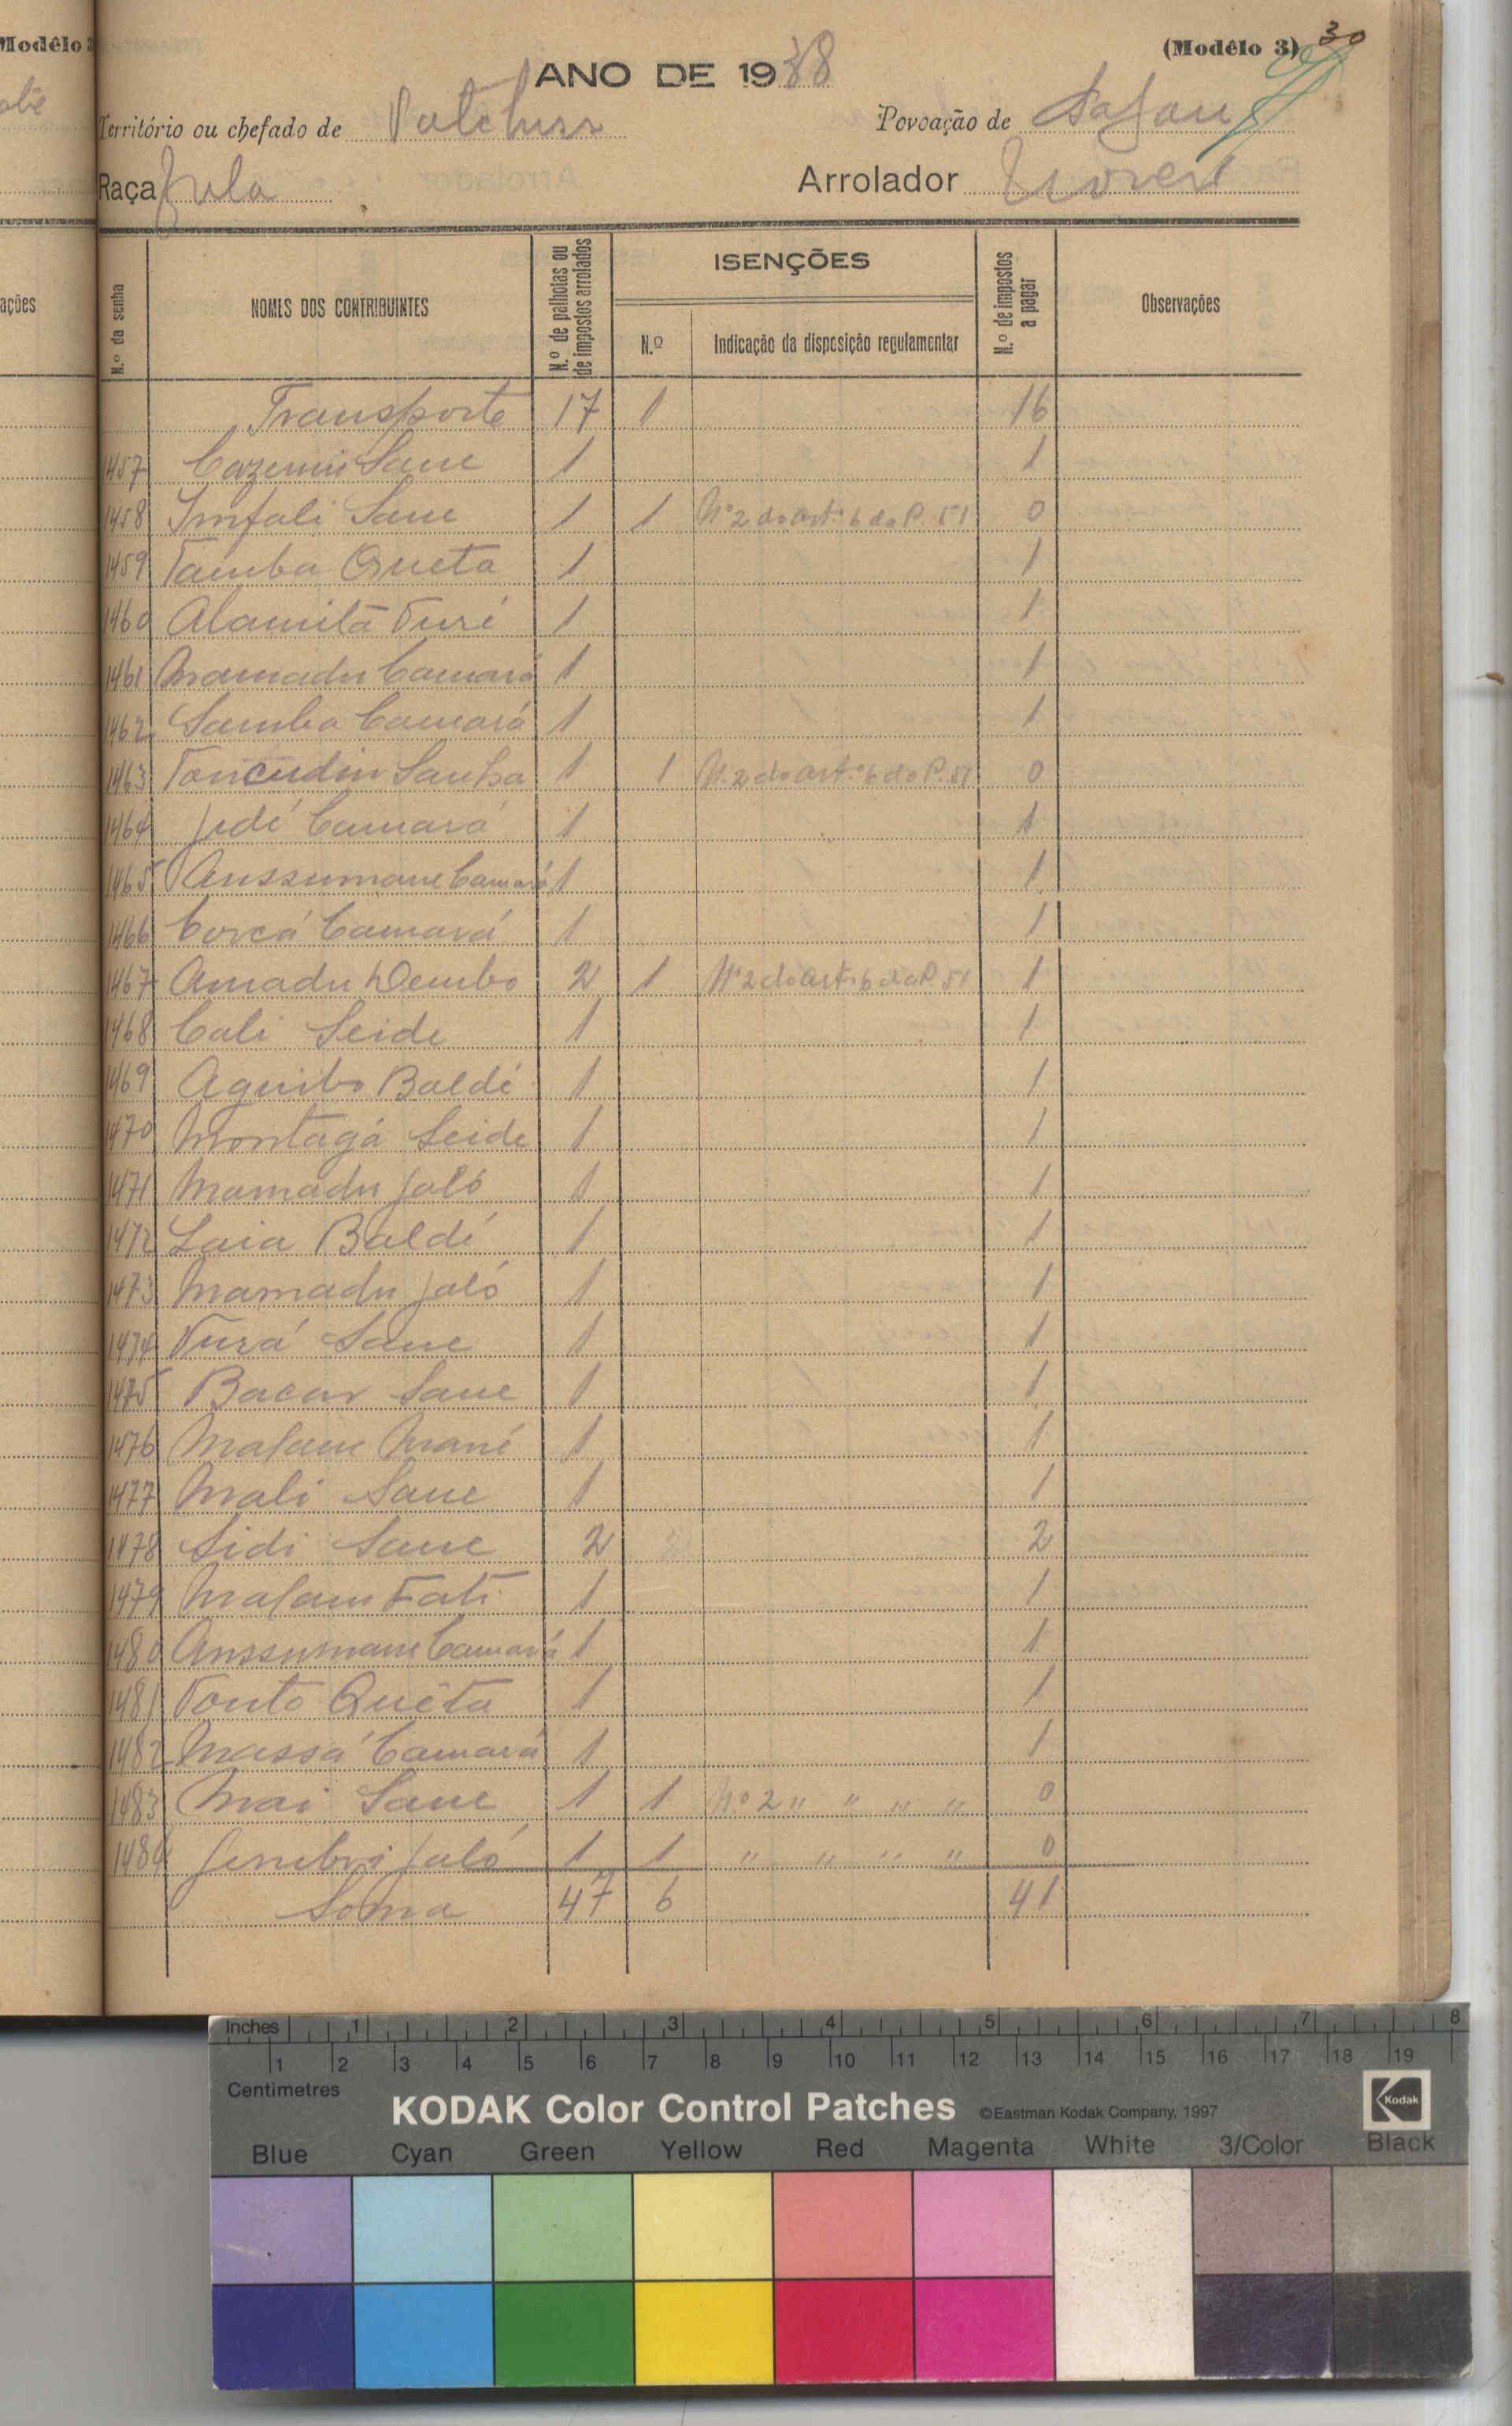 Modêlo 3
(Modêlo 3) 30
ANO DE 1938
Território ou chefado de
Povoação de
Raça Fula
Arrolador
ações
N.º da senha
NOMES DOS CONTRIBUINTES
N.º de palhotas ou de impostos arrolados
ISENÇÕES
N.º
Indicação da disposição regulamentar
N.º de impostos a pagar
Observações
Transporte 17 1 16
1457 Cazemiu Sane 1 1
1458 Imfali Sane 1 1 Nº 2 do artº 6 do P. 51 0
1459 Tamba Queta 1 1
1460 Alamitã Turé 1 1
1461 Mamadu Camará 1 1
1462 Samba Camará 1 1
1463 Sanha 1 1 N.2 do artº 6 do P. 51 0
1464 Jedé Camará 1 1
1465 Anssumane Camará 1 1
1466 Corcá Camará 1 1
1467 Amadu Dembo 2 1 Nº 2 do artº 6 do P. 51 1
1468 Cali Seide 1 1
1469 Aguibo Baldé 1 1
1470 Montagá Seide 1 1
1471 Mamadu Jaló 1 1
1472 Laia Baldé 1 1
1473 Mamadu Jaló 1 1
1474 Turá Sane 1 1
1475 Bacar Sane 1 1
1476 Malam Mané 1 1
1477 Mali Sane 1 1
1478 Sidi Sane 2 2
1479 Malam Fati 1 1
1480 Anssumane Camará 1 1
1481 Fonto Quêta 1 1
1482 Massá Camará 1 1
1483 Mai Sane 1 1 Nº 2 " " " " 0
1484 Jaló 1 1 " " " " 0
Soma 47 6 41
Inches 1 2 3 4 5 6 7 8
1 2 3 4 5 6 7 8 9 10 11 12 13 14 15 16 17 18 19
Centimetres
KODAK Color Control Patches ©Eastman Kodak Company, 1997 Kodak
Blue Cyan Green Yellow Red Magenta White 3/Color Black